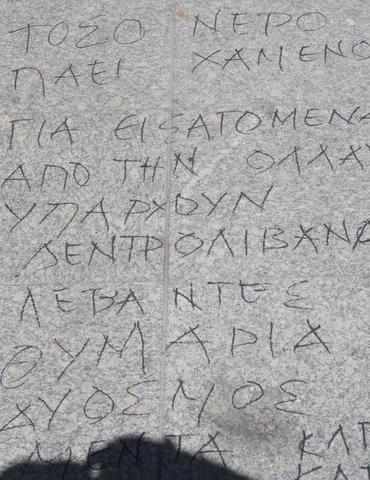 ΤΟΣΟ ΝΕΡΟ
ΠΑΕΙ ΧΑΜΕΝΟ
ΓΙΑ
ΑΠΟ ΤΗΝ
ΥΠΑΡΧΟΥΝ
ΔΕΝΤΡΟΛΙΒΑΝΑ
ΛΕΒΑΝΤΕΣ
ΘΥΜΑΡΙΑ
ΔΥΟΣΜΟΣ
ΜΕΝΤΑ